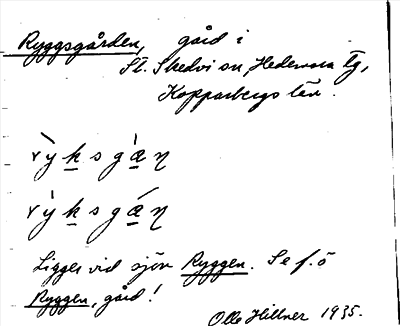 Ryggsgården, gård i
St. Skedvi sn, Hedemora tg,
Kopparbergs län.
rỳksgàn
rýksgán
Ligger vid sjön Ryggen. Se f. ö
Ryggen, gård!
Olle Hillner 1935.